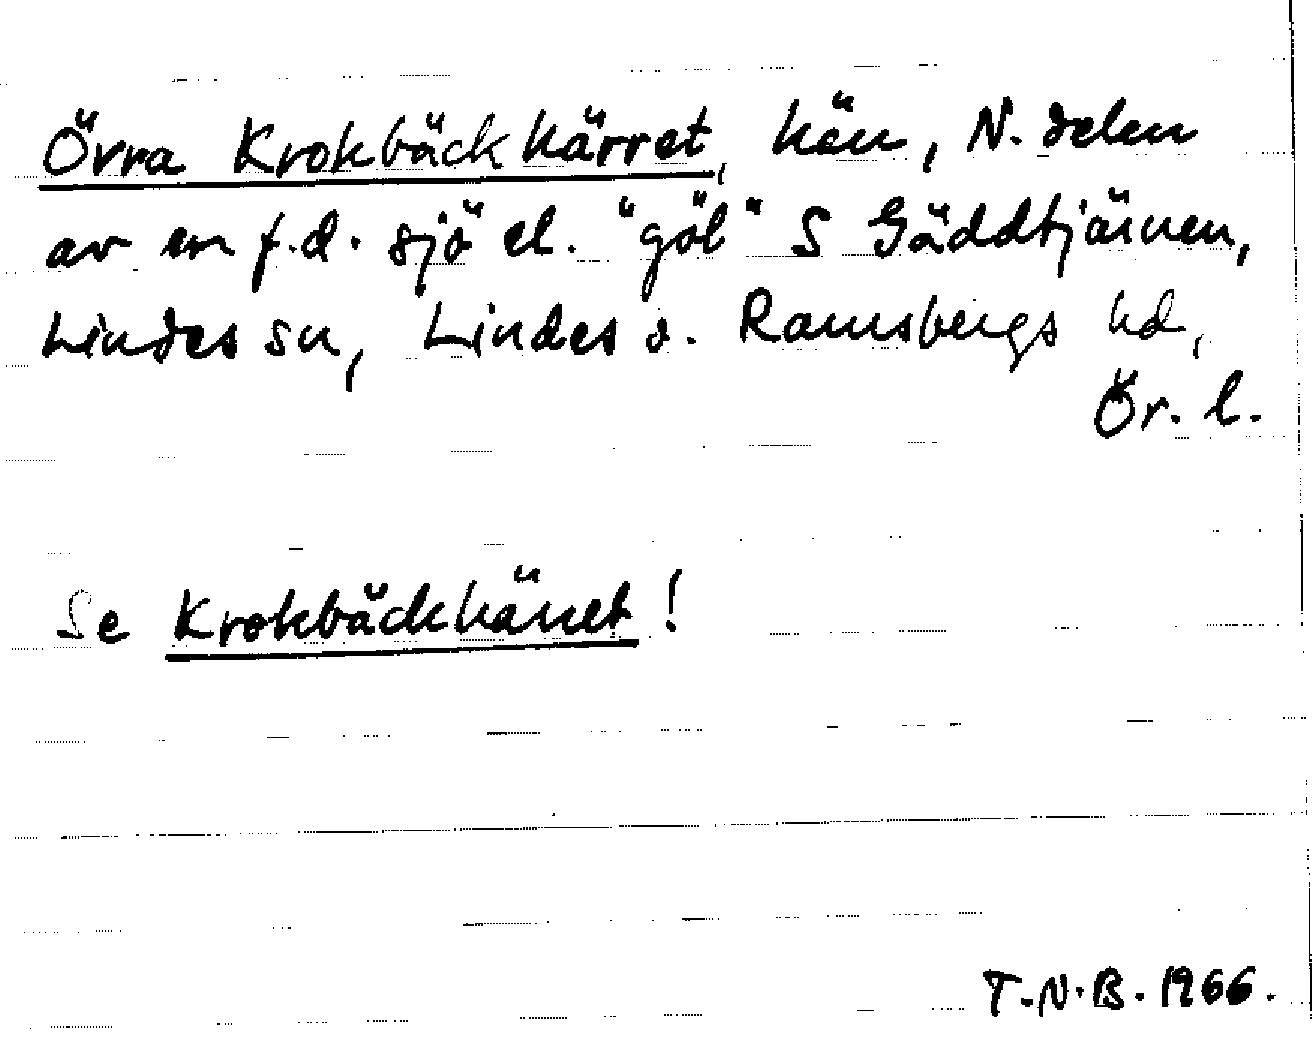 Övra Krokbäckkärret, kärr, N. delen
av en f.d. sjö el. "göl" S Gäddtjärnen,
Lindes sn, Lindes o. Ramsbergs hd,
Ör. l.
Se Krokbäckkärret!
T.N.B. 1966.